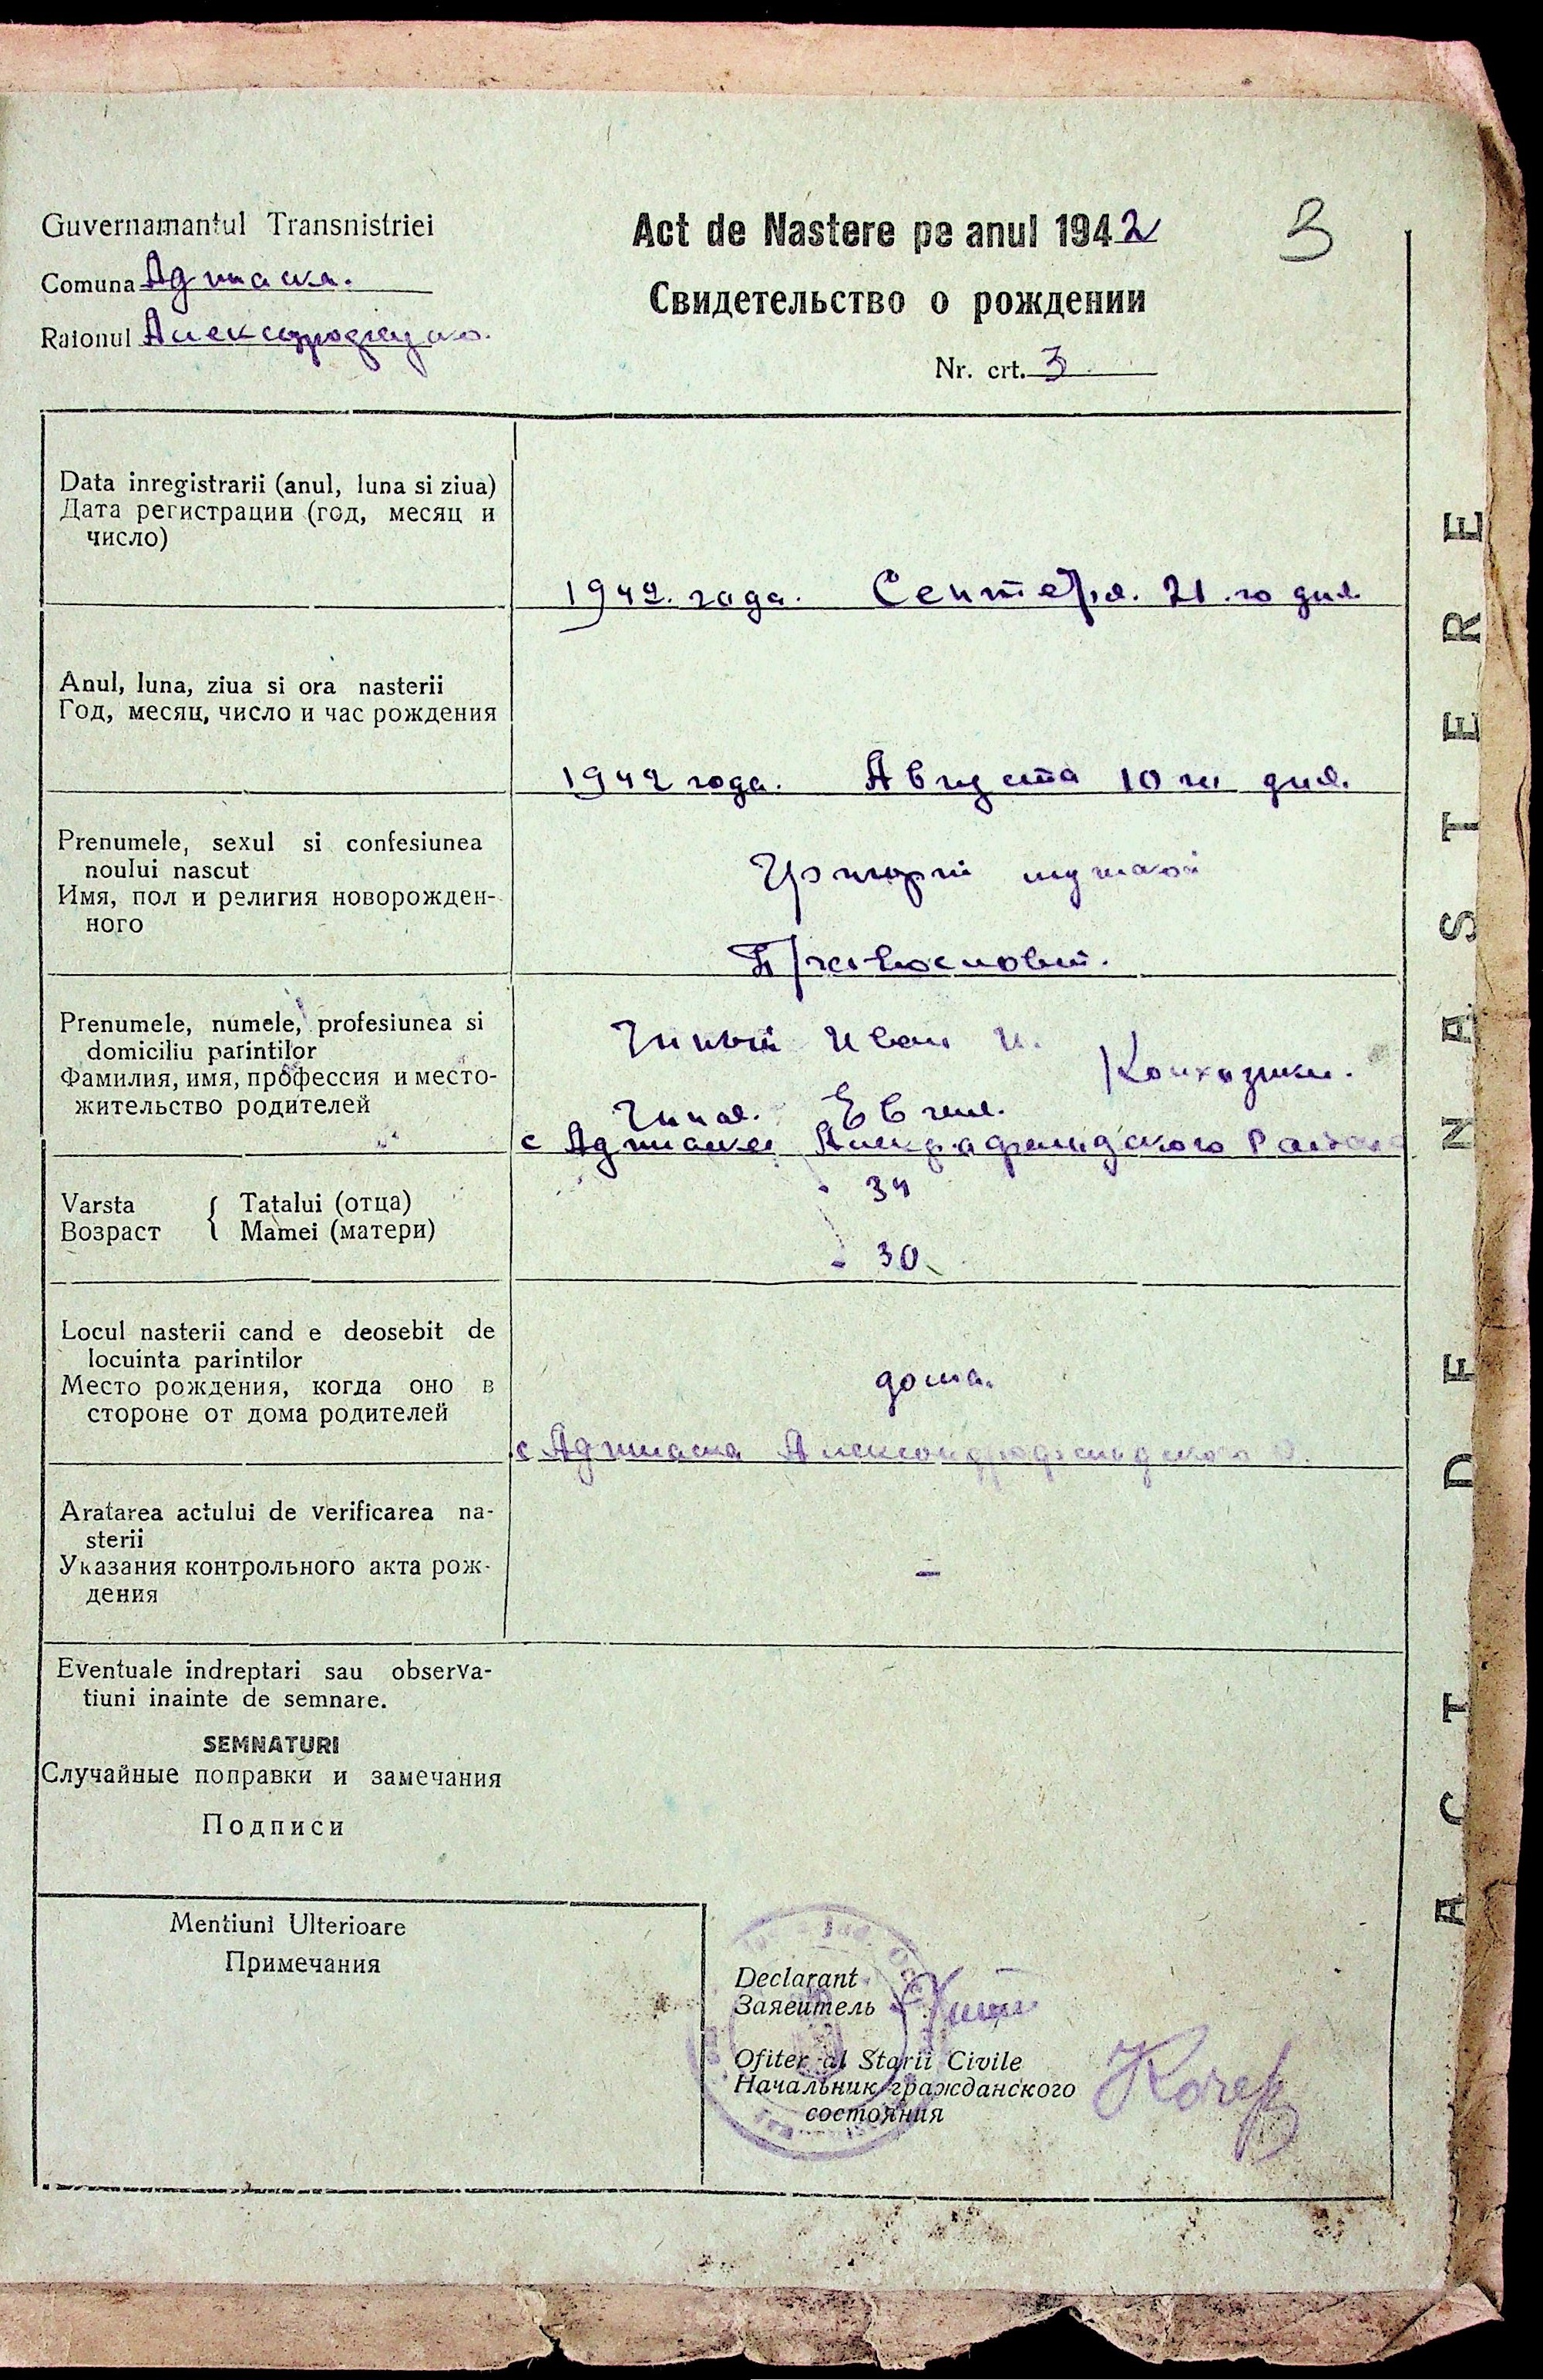 Guvernamantul Transnistriei
Comuna Аджиаска.
Raionul
Act de Nastere pe anul 1942
Свидетельство о рождении
Nr. crt. 3
3
Data inregistrarii (anul, luna si ziua)
Дата регистрации (год, месяц и
число)
1942. года. 21. го дня
Anul, luna, ziua si ora nasterii
Год, месяц, число и час рождения
1942 года. Августа 10 го дня.
Prenumele, sexul si confesiunea
noului nascut
Имя, пол и религия новорожден-
ного
Prenumele, numele, profesiunea si
domiciliu parintilor
Фамилия, имя, профессия и место-
жительство родителей
Иван И.
Колхозники.
с Аджиаска
Varsta { Tatalui (отца)
Возраст Mamei (матери)
34
30
Locul nasterii cand e deosebit de
locuinta parintilor
Место рождения, когда оно в
стороне от дома родителей
дома.
с Аджиаска
Aratarea actului de verificarea na-
sterii
Указания контрольного акта рож-
дения
–
Eventuale indreptari sau observa-
tiuni inainte de semnare.
SEMNATURI
Случайные поправки и замечания
Подписи
Mentiuni Ulterioare
Примечания
Declarant
Заяеитель
Ofiter al Starii Civile
Начальник гражданского
состояния
ACT DE NASTERE